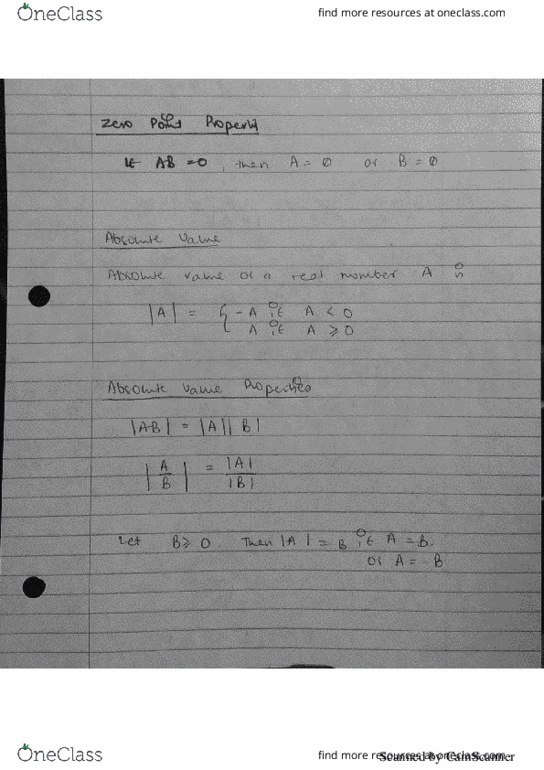 OneClass
find more resources at oneclass.com
Zero Point Property
If AB = 0, then A = 0 or B = 0
Absolute Value
Absolute value of a real number A is
|A| = { -A if A < 0
A if A ≥ 0
Absolute Value Properties
|AB| = |A||B|
|A/B| = |A|/|B|
Let B ≥ 0. Then |A| = B if A = B.
or A = -B
OneClass
find more resources at oneclass.com
Scanned by CamScanner